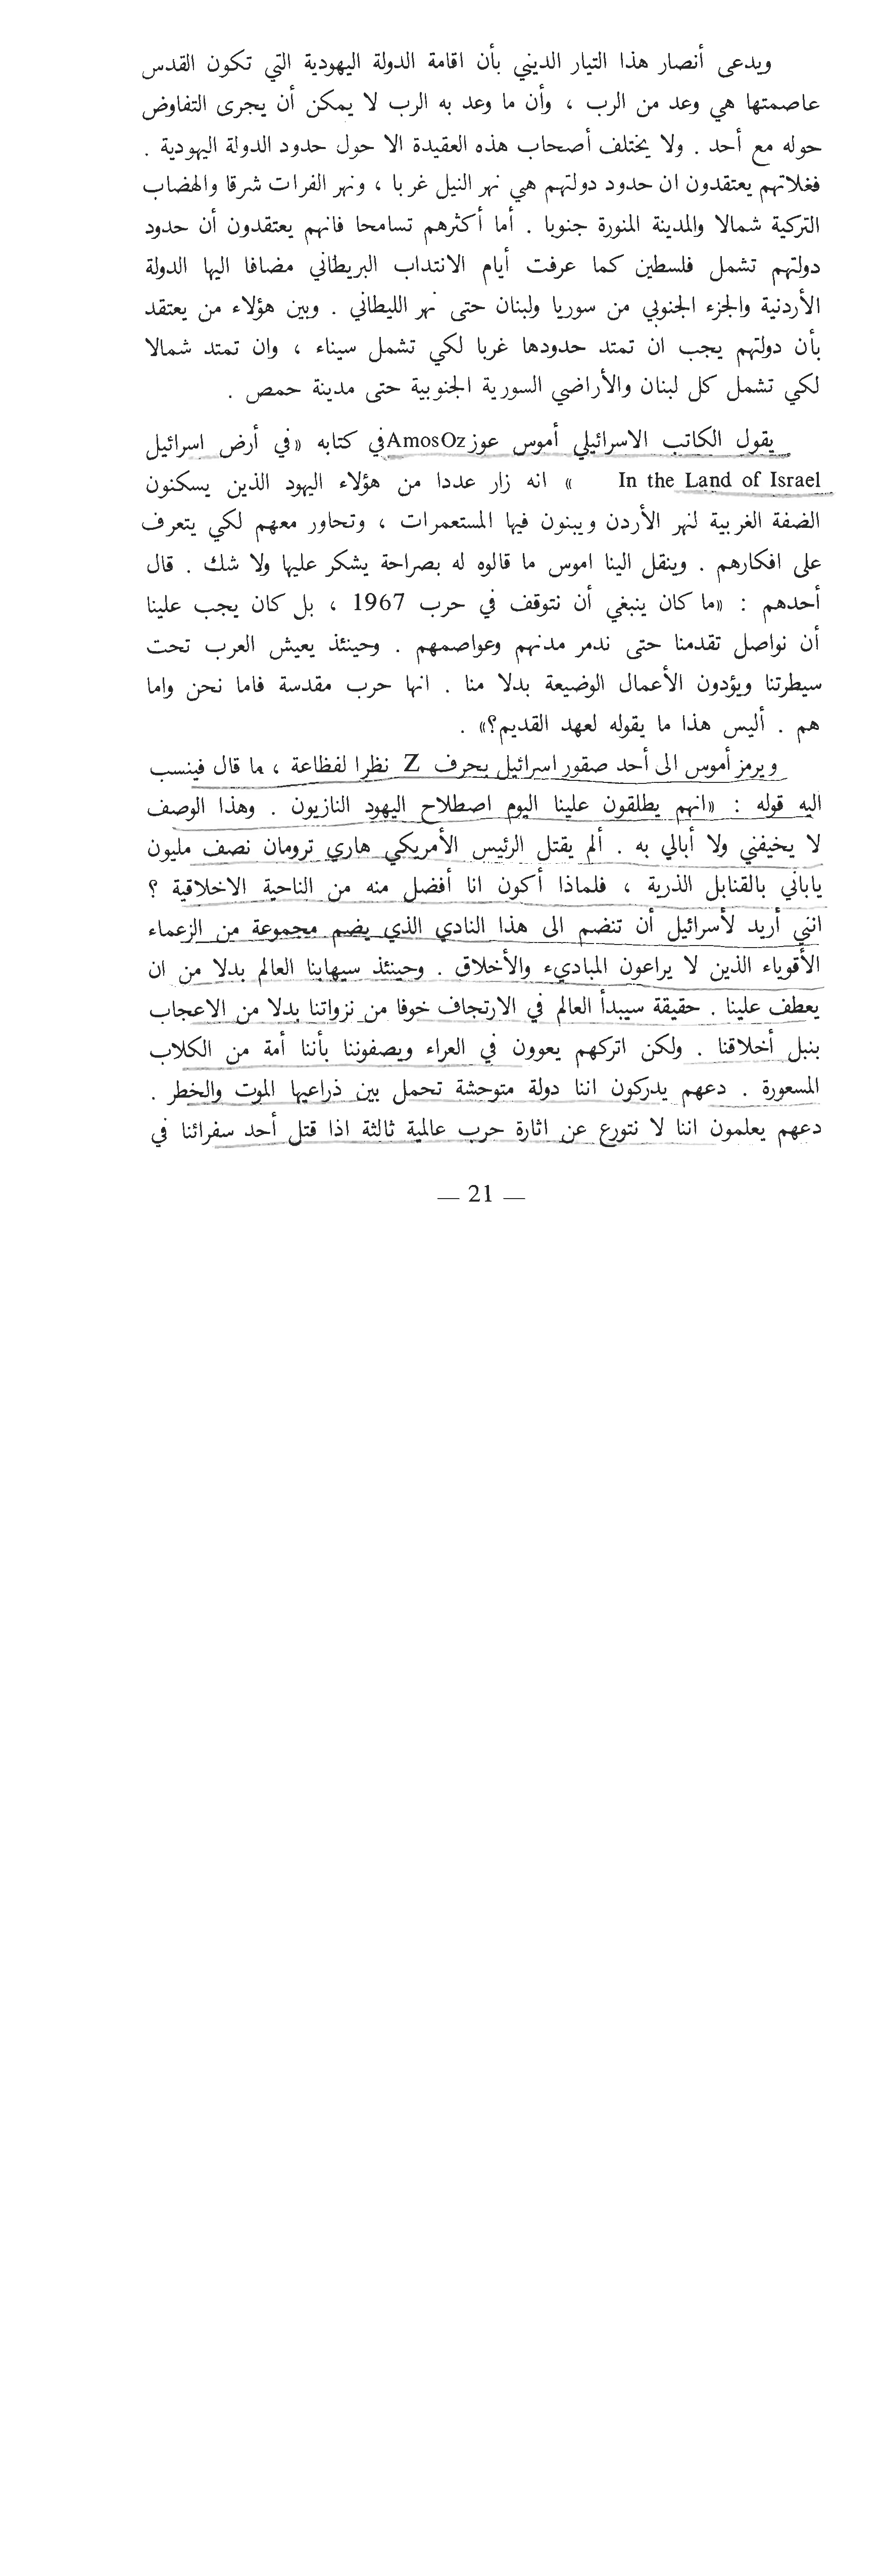 ويدعى أنصار هذا التيار الديني بأن اقامة الدولة اليهودية التي تكون القدس
عاصمتها هي وعد من الرب ، وأن ما وعد به الرب لا يمكن أن يجرى التفاوض
حوله مع أحد . ولا يختلف أصحاب هذه العقيدة الا حول حدود الدولة اليهودية .
فغلاتهم يعتقدون ان حدود دولتهم هي نهر النيل غربا ، ونهر الفرات شرقا والهضاب
التركية شمالا والمدينة المنورة جنوبا . أما أكثرهم تسامحا فانهم يعتقدون أن حدود
دولتهم تشمل فلسطين كما عرفت أيام الانتداب البريطاني مضافا اليها الدولة
الأردنية والجزء الجنوبي من سوريا ولبنان حتى نهر الليطاني . وبين هؤلاء من يعتقد
بأن دولتهم يجب ان تمتد حدودها غربا لكي تشمل سيناء ، وان تمتد شمالا
لكي تشمل كل لبنان والأراضي السورية الجنوبية حتى مدينة حمص .
يقول الكاتب الاسرائيلي أموس عوز AmosOz في كتابه «في أرض اسرائيل
In the Land of Israel » انه زار عددا من هؤلاء اليهود الذين يسكنون
الضفة الغربية لنهر الأردن ويبنون فيها المستعمرات ، وتحاور معهم لكي يتعرف
على افكارهم . وينقل الينا اموس ما قالوه له بصراحة يشكر عليها ولا شك . قال
أحدهم : «ما كان ينبغي أن نتوقف في حرب 1967 ، بل كان يجب علينا
أن نواصل تقدمنا حتى ندمر مدنهم وعواصمهم . وحينئذ يعيش العرب تحت
سيطرتنا ويؤدون الأعمال الوضيعة بدلا منا . انها حرب مقدسة فاما نحن واما
هم . أليس هذا ما يقوله لعهد القديم؟» .
ويرمز أموس الى أحد صقور اسرائيل بحرف Z نظرا لفظاعة ، ما قال فينسب
اليه قوله : «انهم يطلقون علينا اليوم اصطلاح اليهود النازيون . وهذا الوصف
لا يخيفني ولا أبالي به . ألم يقتل الرئيس الأمريكي هاري ترومان نصف مليون
ياباني بالقنابل الذرية ، فلماذا أكون انا أفضل منه من الناحية الاخلاقية ؟
انني أريد لأسرائيل أن تنضم الى هذا النادي الذي يضم مجموعة من الزعماء
الأقوياء الذين لا يراعون المباديء والأخلاق . وحينئذ سيهابنا العالم بدلا من ان
يعطف علينا . حقيقة سيبدأ العالم في الارتجاف خوفا من نزواتنا بدلا من الاعجاب
بنبل أخلاقنا . ولكن اتركهم يعوون في العراء ويصفوننا بأننا أمة من الكلاب
المسعورة . دعهم يدركون اننا دولة متوحشة تحمل بين ذراعيها الموت والخطر .
دعهم يعلمون اننا لا نتورع عن اثارة حرب عالمية ثالثة اذا قتل أحد سفرائنا في
— 21 —